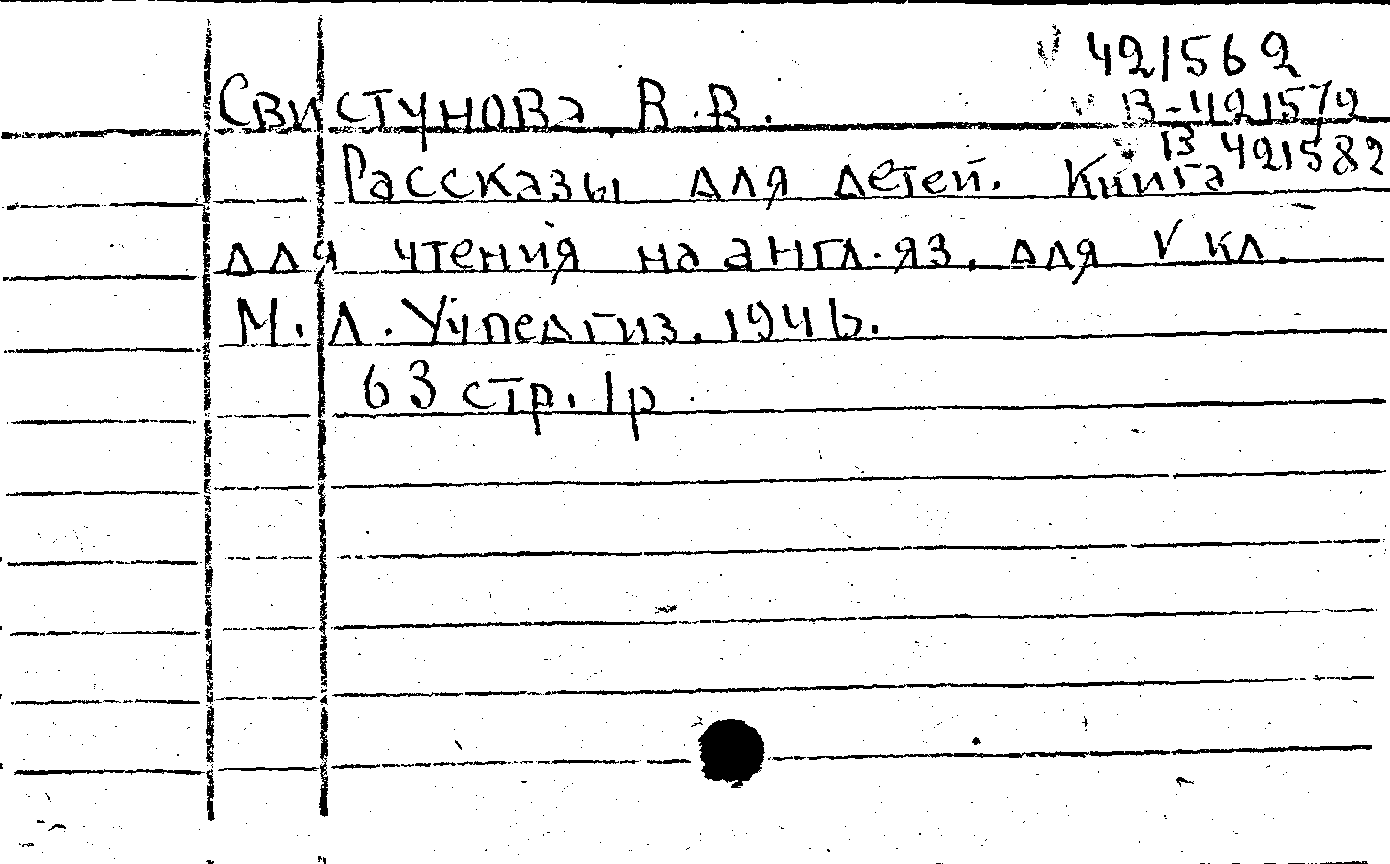 421562
Свистунова В.В.
В-421572
В 421582
Рассказы для детей. Книга
для чтения на англ.яз. для V кл.
М.Л. Учпедгиз. 1946.
63 стр. 1р.